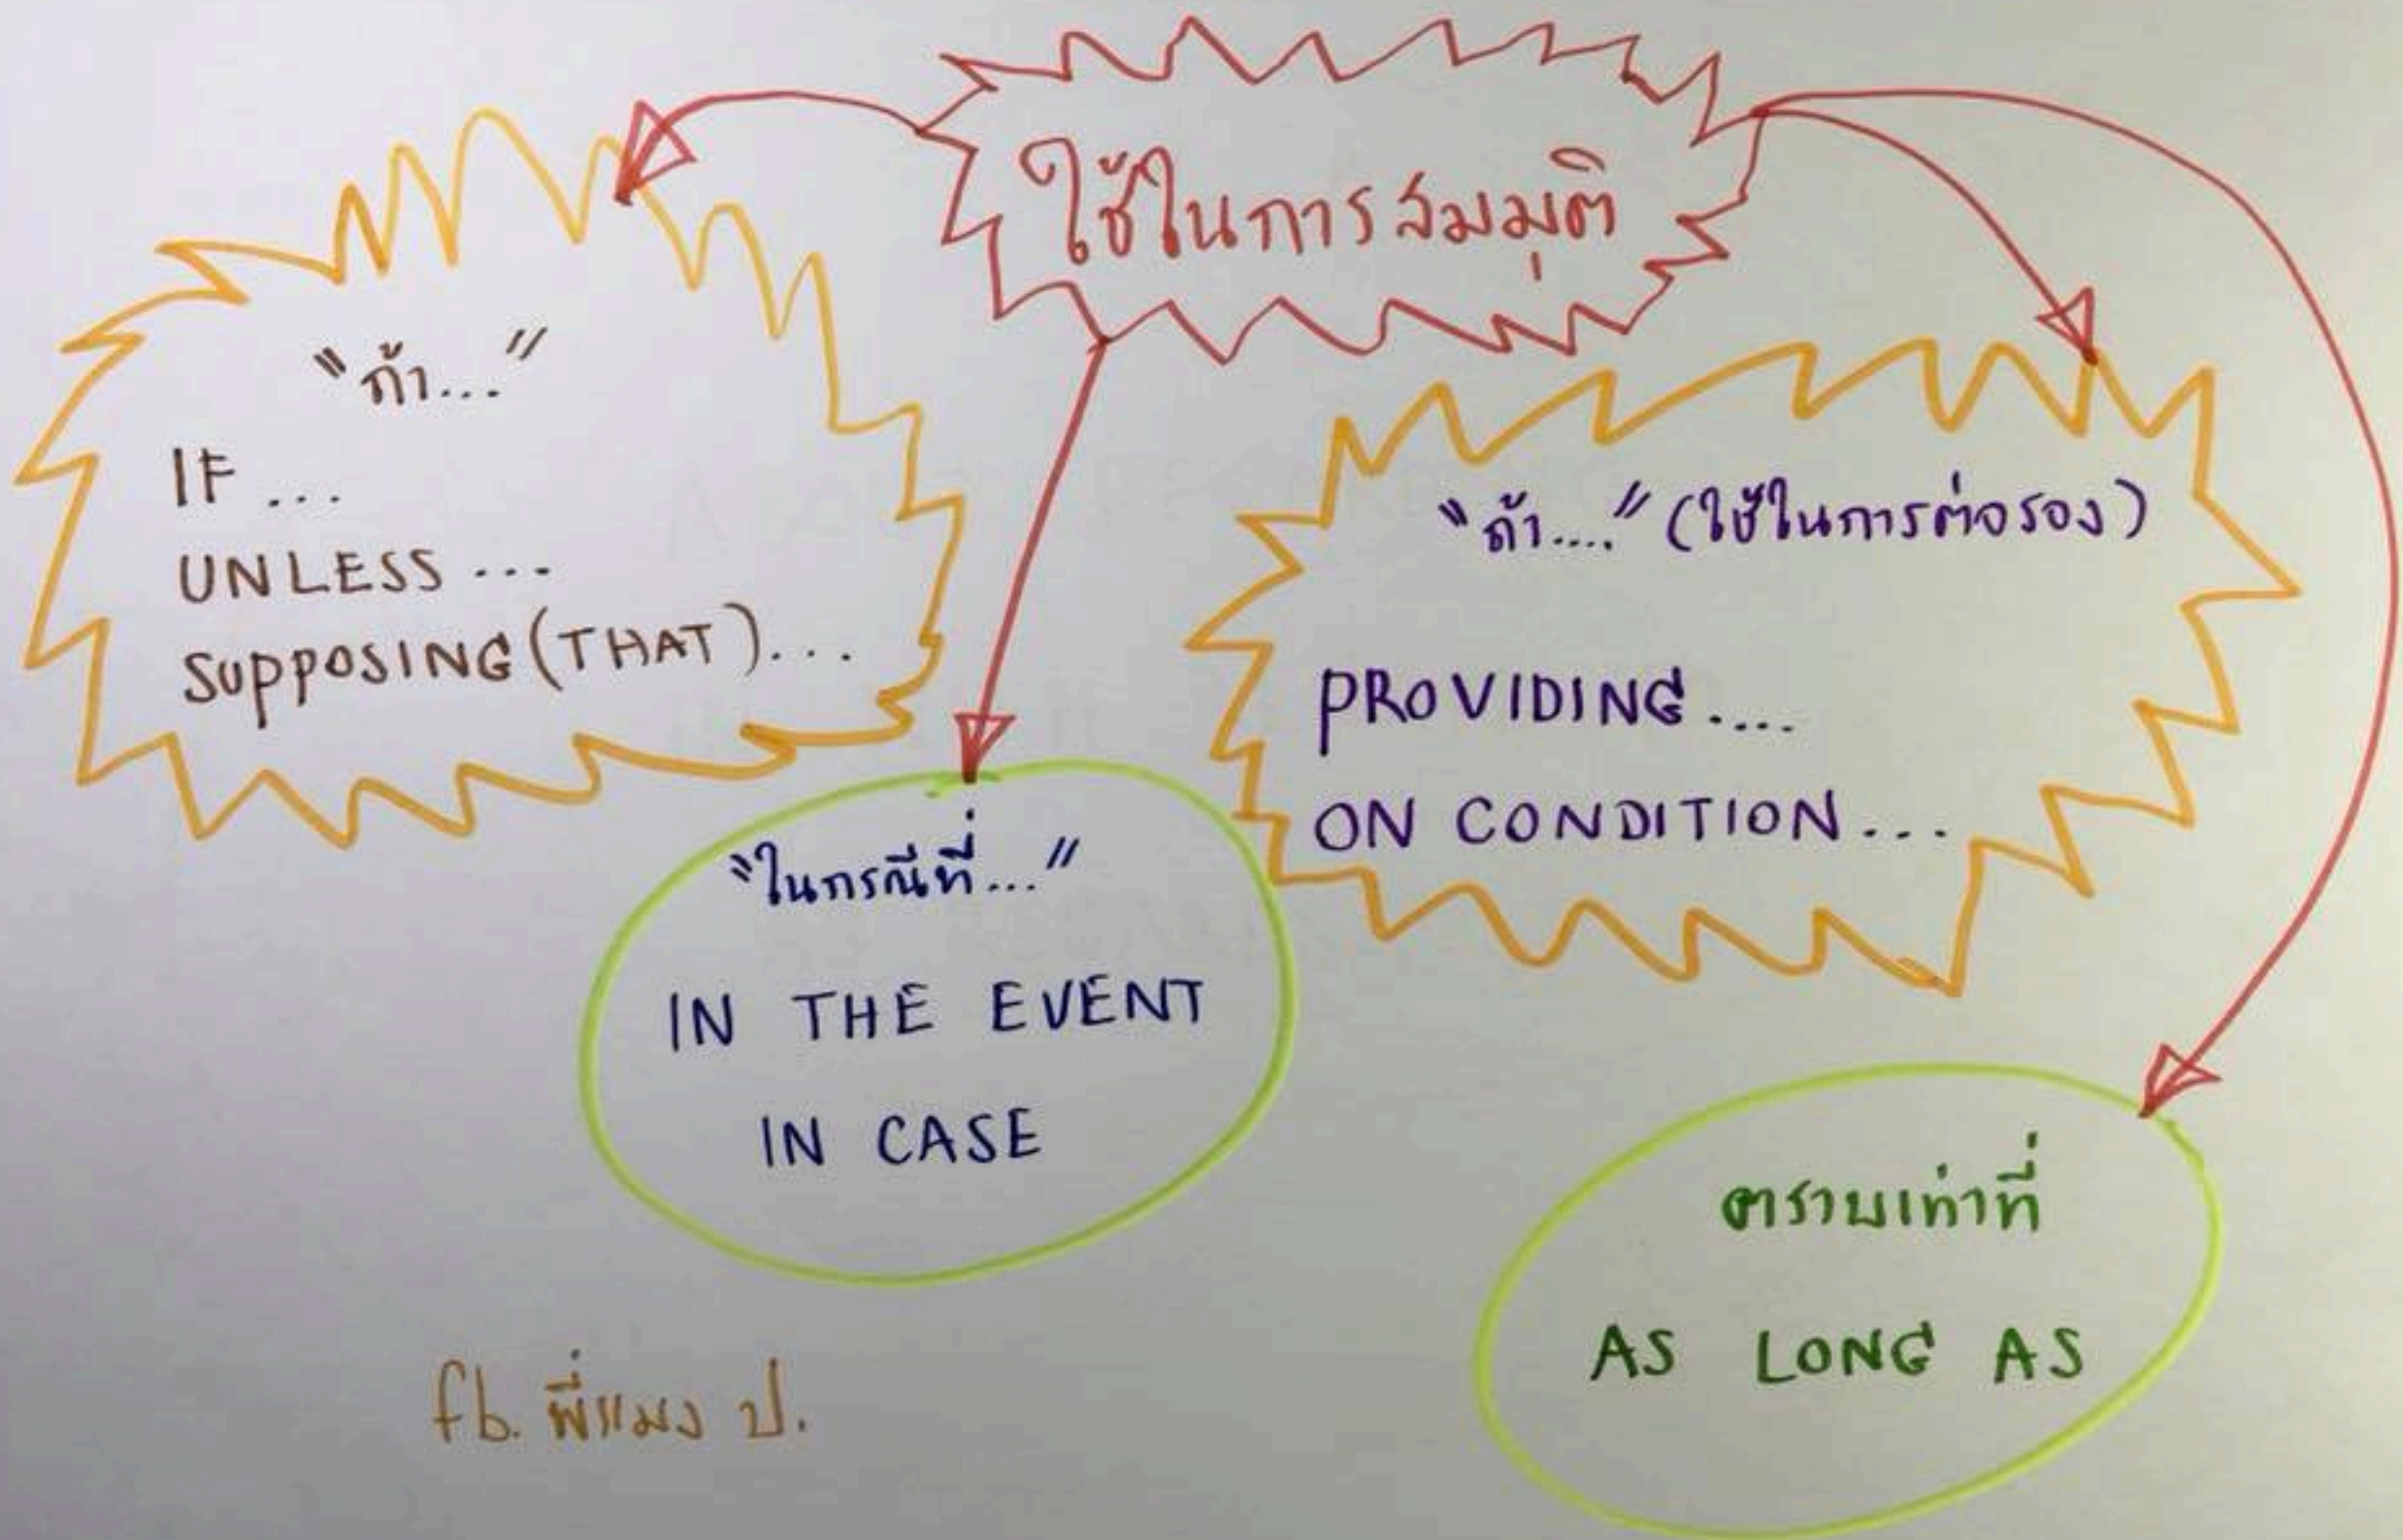 ใช้ในการสมมุติ
"ถ้า..."
IF ...
UNLESS ...
SUPPOSING (THAT)...
"ถ้า...." (ใช้ในการต่อรอง)
PROVIDING ....
ON CONDITION ...
"ในกรณีที่..."
IN THE EVENT
IN CASE
ตราบเท่าที่
AS LONG AS
fb. พี่แมง ป.